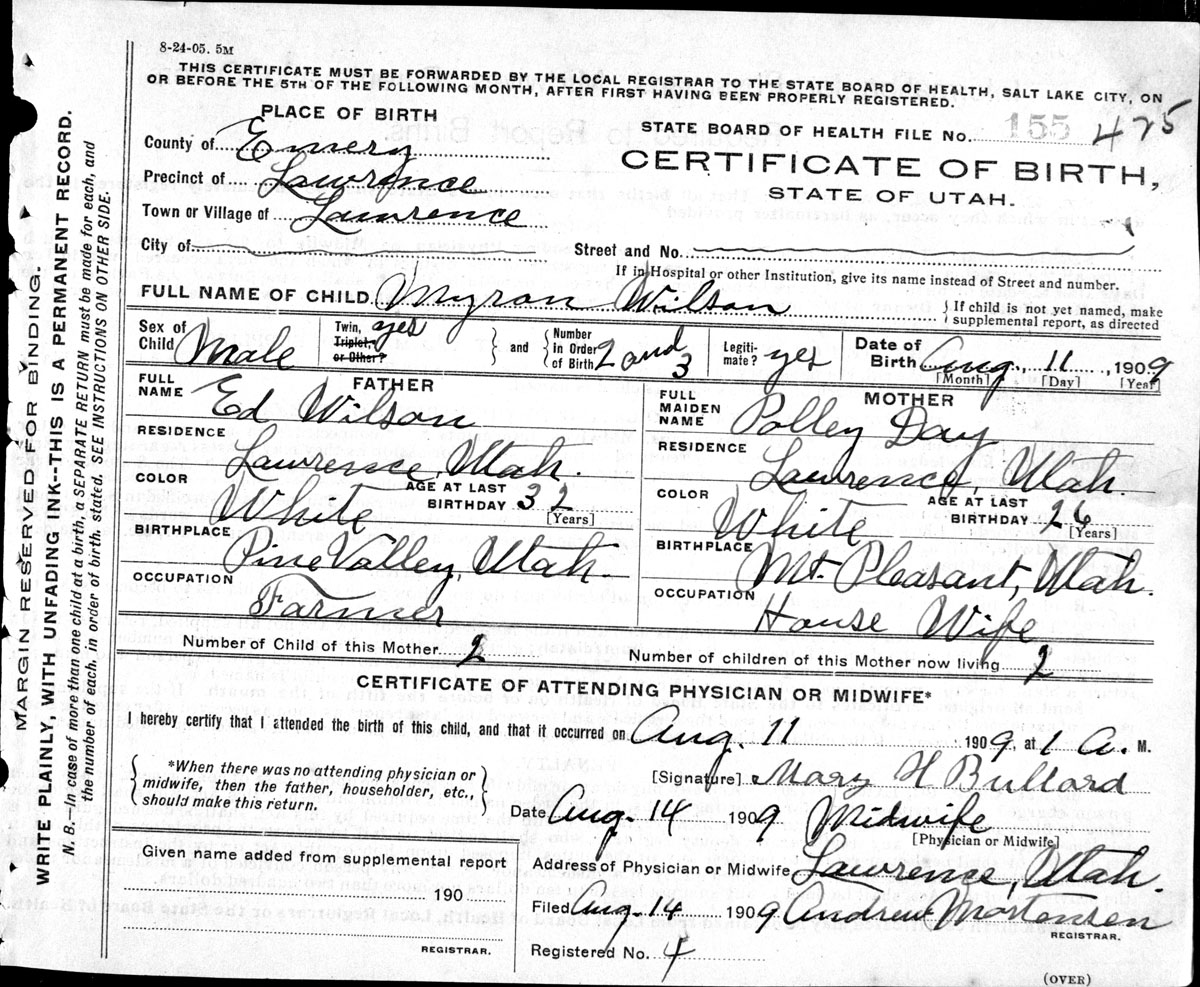 8-24-05. 5M
THIS CERTIFICATE MUST BE FORWARDED BY THE LOCAL REGISTRAR TO THE STATE BOARD OF HEALTH, SALT LAKE CITY, ON
OR BEFORE THE 5TH OF THE FOLLOWING MONTH, AFTER FIRST HAVING BEEN PROPERLY REGISTERED.
PLACE OF BIRTH
STATE BOARD OF HEALTH FILE No. 155 475
County of Emery
CERTIFICATE OF BIRTH,
Precinct of Lawrence
STATE OF UTAH.
Town or Village of Lawrence
City of
Street and No.
If in Hospital or other Institution, give its name instead of Street and number.
FULL NAME OF CHILD Myron Wilson
{ If child is not yet named, make
supplemental report, as directed
Sex of Child Male
Twin, Triplet, or Other? yes
and
Number in Order of Birth 2 and 3
Legiti-mate? yes
Date of Birth Aug. 11, 1909
[Month] [Day] [Year]
FATHER
FULL NAME Ed Wilson
RESIDENCE Lawrence, Utah.
COLOR White
AGE AT LAST BIRTHDAY 32
[Years]
BIRTHPLACE Pine Valley, Utah.
OCCUPATION Farmer
MOTHER
FULL MAIDEN NAME Polley Day
RESIDENCE Lawrence, Utah.
COLOR White
AGE AT LAST BIRTHDAY 26
[Years]
BIRTHPLACE Mt. Pleasant, Utah.
OCCUPATION House Wife
Number of Child of this Mother 2
Number of children of this Mother now living 2
CERTIFICATE OF ATTENDING PHYSICIAN OR MIDWIFE*
I hereby certify that I attended the birth of this child, and that it occurred on Aug. 11 1909, at 1 A. M.
*When there was no attending physician or
midwife, then the father, householder, etc.,
should make this return.
[Signature] Mary H Bullard
Date Aug. 14 1909 Midwife
[Physician or Midwife]
Given name added from supplemental report
190
REGISTRAR.
Address of Physician or Midwife Lawrence, Utah.
Filed Aug. 14 1909 Andrew Mortensen
REGISTRAR.
Registered No. 4
(OVER)
MARGIN RESERVED FOR BINDING.
WRITE PLAINLY, WITH UNFADING INK--THIS IS A PERMANENT RECORD.
N. B.—In case of more than one child at a birth, a SEPARATE RETURN must be made for each, and
the number of each, in order of birth, stated. SEE INSTRUCTIONS ON OTHER SIDE.